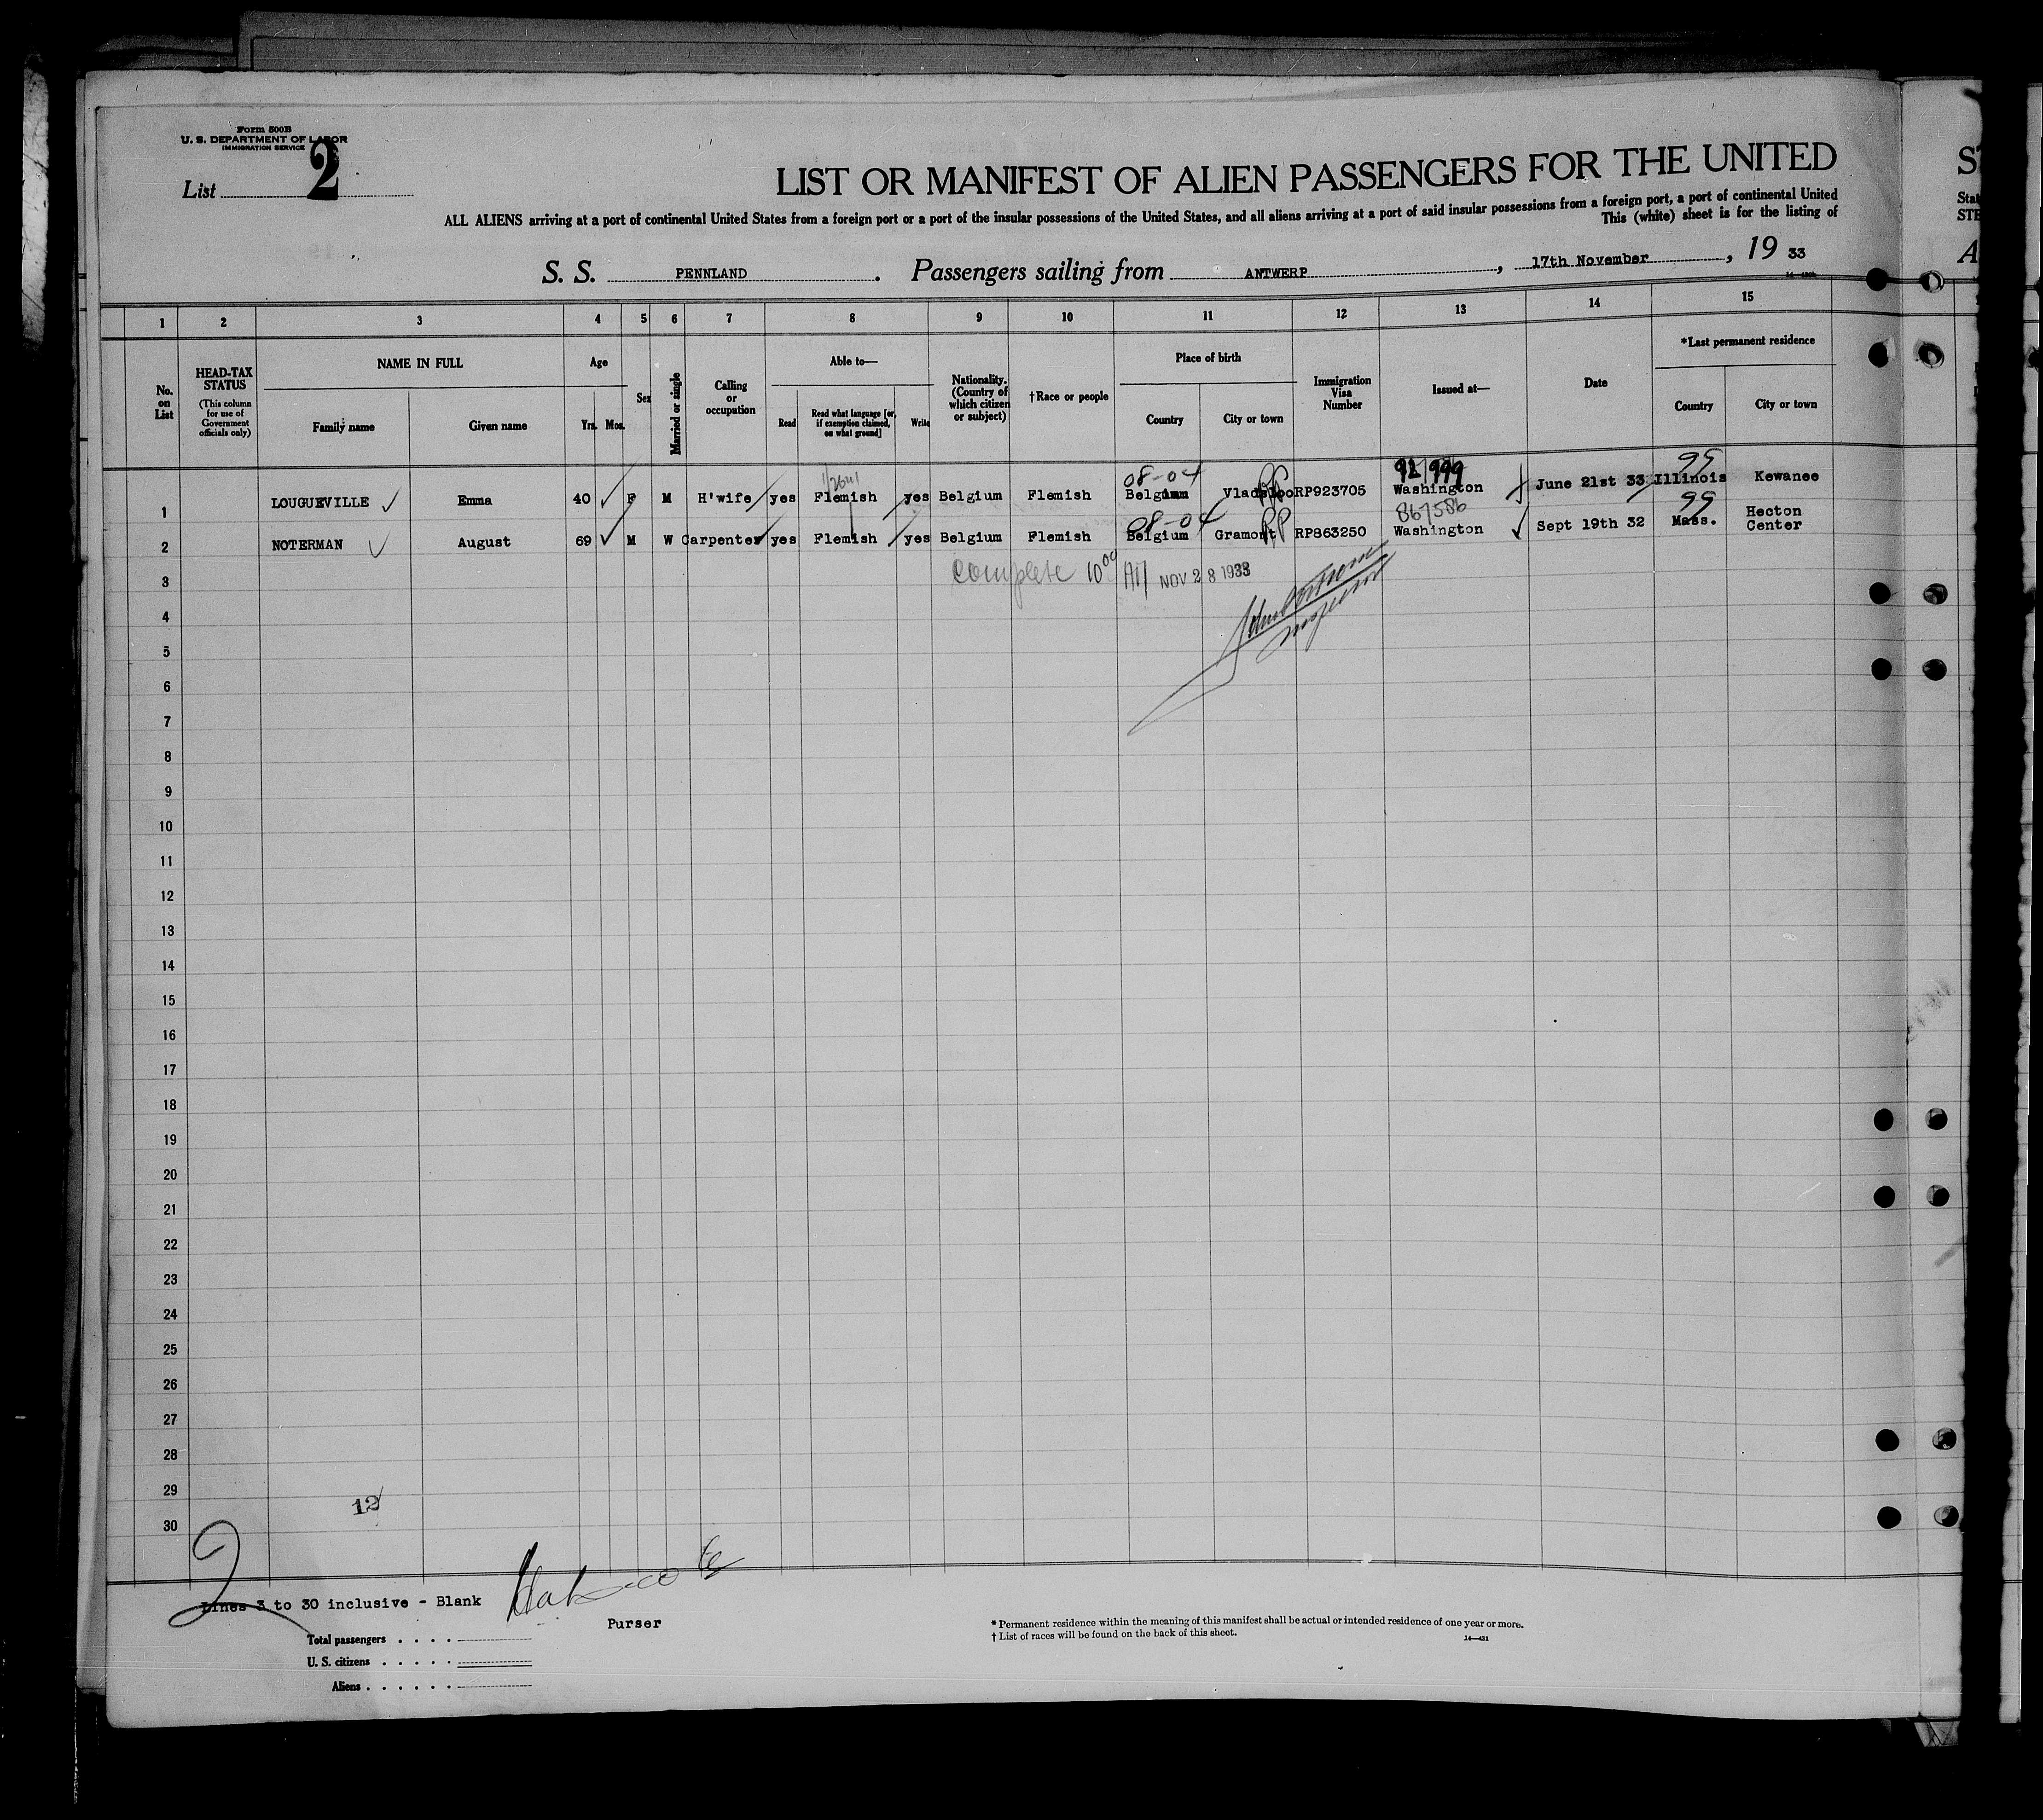 Form 500B
U. S. DEPARTMENT OF LABOR
IMMIGRATION SERVICE
List 2
LIST OR MANIFEST OF ALIEN PASSENGERS FOR THE UNITED
ALL ALIENS arriving at a port of continental United States from a foreign port or a port of the insular possessions of the United States, and all aliens arriving at a port of said insular possessions from a foreign port, a port of continental United
This (white) sheet is for the listing of
S. S. PENNLAND. Passengers sailing from ANTWERP, 17th November, 19 33
1 2 3 4 5 6 7 8 9 10 11 12 13 14 15
No. on List
HEAD-TAX STATUS
(This column for use of Government officials only)
NAME IN FULL
Family name
Given name
Age
Yrs. Mos.
Sex
Married or single
Calling or occupation
Able to—
Read
Read what language [or, if exemption claimed, on what ground]
Write
Nationality. (Country of which citizen or subject)
†Race or people
Place of birth
Country
City or town
Immigration Visa Number
Issued at—
Date
*Last permanent residence
Country
City or town
08-04 99
1 LOUGUEVILLE Emma 40 F M H'wife yes Flemish yes Belgium Flemish Belgium Vladsloo RP923705 Washington June 21st 33 Illinois Kewanee
08-04 867586 99
2 NOTERMAN August 69 M W Carpenter yes Flemish yes Belgium Flemish Belgium Gramont RP863250 Washington Sept 19th 32 Mass. Hecton Center
complete 10 00 NOV 28 1933
3
4
5
6
7
8
9
10
11
12
13
14
15
16
17
18
19
20
21
22
23
24
25
26
27
28
29
12
30
2
Lines 3 to 30 inclusive - Blank
Purser
Total passengers
U. S. citizens
Aliens
* Permanent residence within the meaning of this manifest shall be actual or intended residence of one year or more.
† List of races will be found on the back of this sheet.
14—431
S
Stat
STE
A